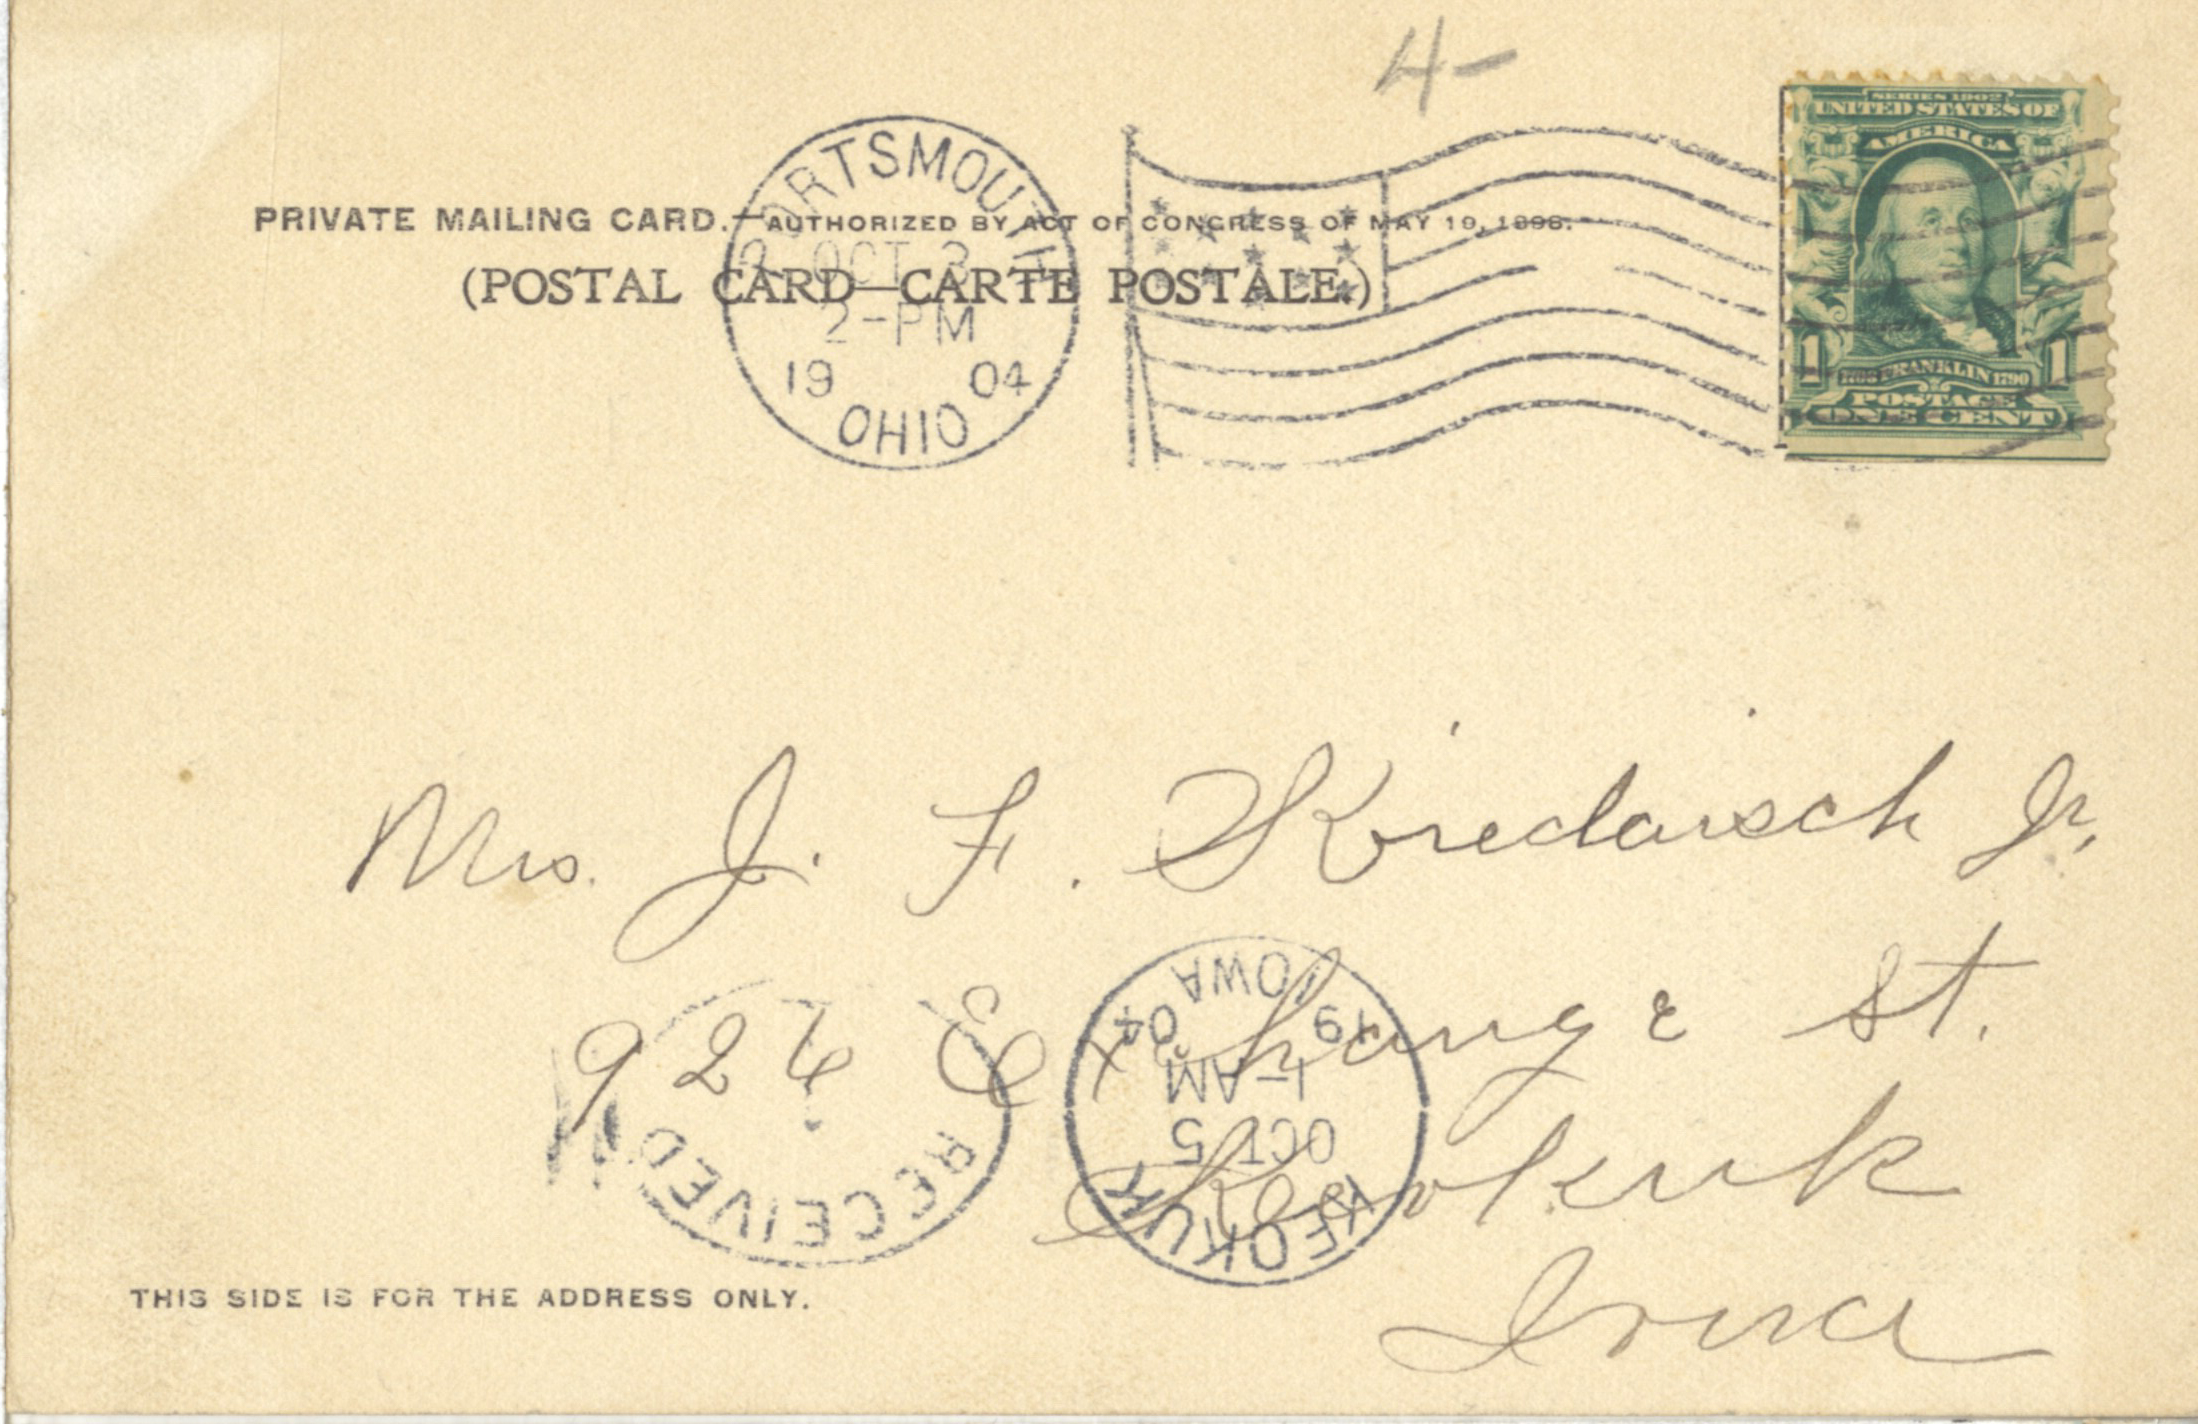 4-
SERIES 1902
UNITED STATES OF
AMERICA
1 1
FRANKLIN 1790
POSTAGE
ONE CENT
PORTSMOUTH
OCT 3
2-PM
19 04
OHIO
PRIVATE MAILING CARD.—AUTHORIZED BY ACT OF CONGRESS OF MAY 19, 1898.
(POSTAL CARD—CARTE POSTALE.)
Mrs. J. F. Kiedaisch Jr.
926 St.
Keokuk
Iowa
KEOKUK
OCT 5
1-AM
19 04
IOWA
RECEIVED
THIS SIDE IS FOR THE ADDRESS ONLY.